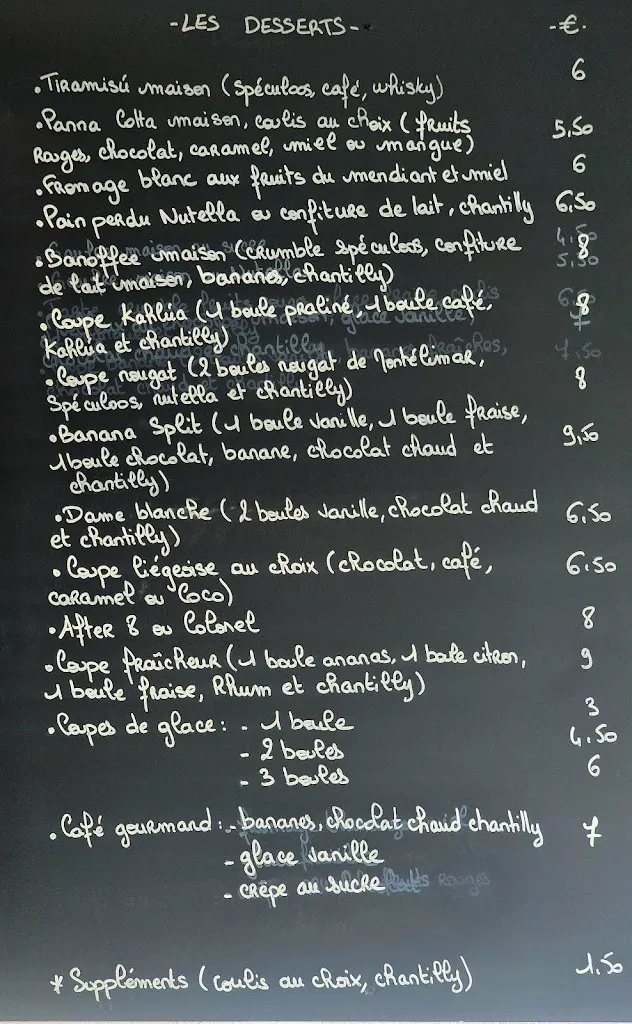 -LES DESSERTS- -€-
• Tiramisú maison (spéculoos, café, whisky) 6
• Panna Cotta maison, coulis au choix (fruits 5,50
Rouges, chocolat, caramel, miel ou mangue)
• Fromage blanc aux fruits du mendiant et miel 6
• Pain perdu Nutella ou confiture de lait, chantilly 6,50
• Banoffee maison (crumble spéculoos, confiture 8
de lait maison, bananes, chantilly)
• Coupe Kahlúa (1 boule praliné, 1 boule café, 8
Kahlúa et chantilly)
• Coupe nougat (2 boules nougat de Montélimar, 8
Spéculoos, nutella et chantilly)
• Banana Split (1 boule vanille, 1 boule fraise, 9,50
1 boule chocolat, banane, chocolat chaud et
chantilly)
• Dame blanche (2 boules vanille, chocolat chaud 6,50
et chantilly)
• Coupe liégeoise au choix (chocolat, café, 6.50
caramel ou Coco)
• After 8 ou Colonel 8
• Coupe fraîcheur (1 boule ananas, 1 boule citron, 9
1 boule fraise, Rhum et chantilly)
• Coupes de glace : - 1 boule 3
- 2 boules 4.50
- 3 boules 6
• Café gourmand : - bananes, chocolat chaud chantilly 7
- glace vanille
- crêpe au sucre
* Suppléments (coulis au choix, chantilly) 1.50